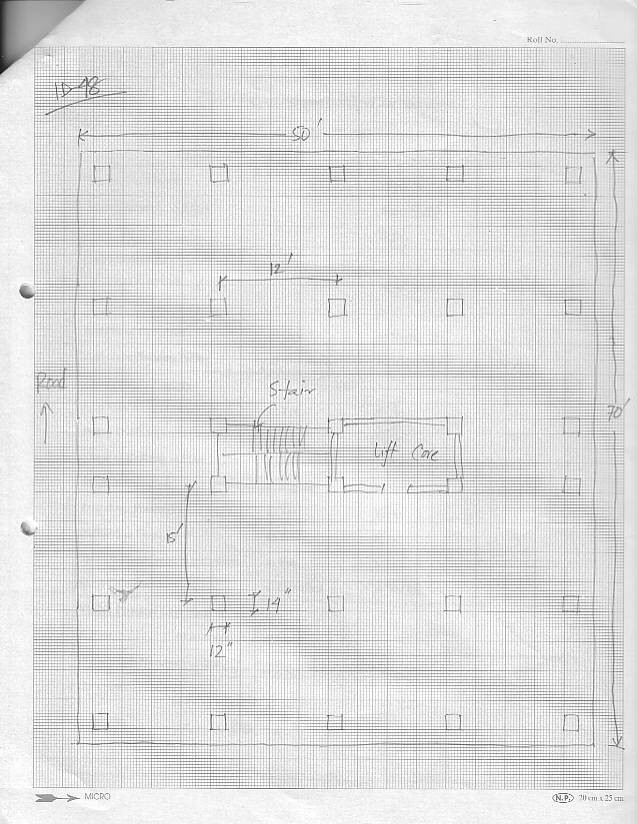 Roll No.
ID-48
50'
12'
Road
Stair
70'
Lift Core
15'
14"
12"
MICRO
N.P. 20 cm x 25 cm